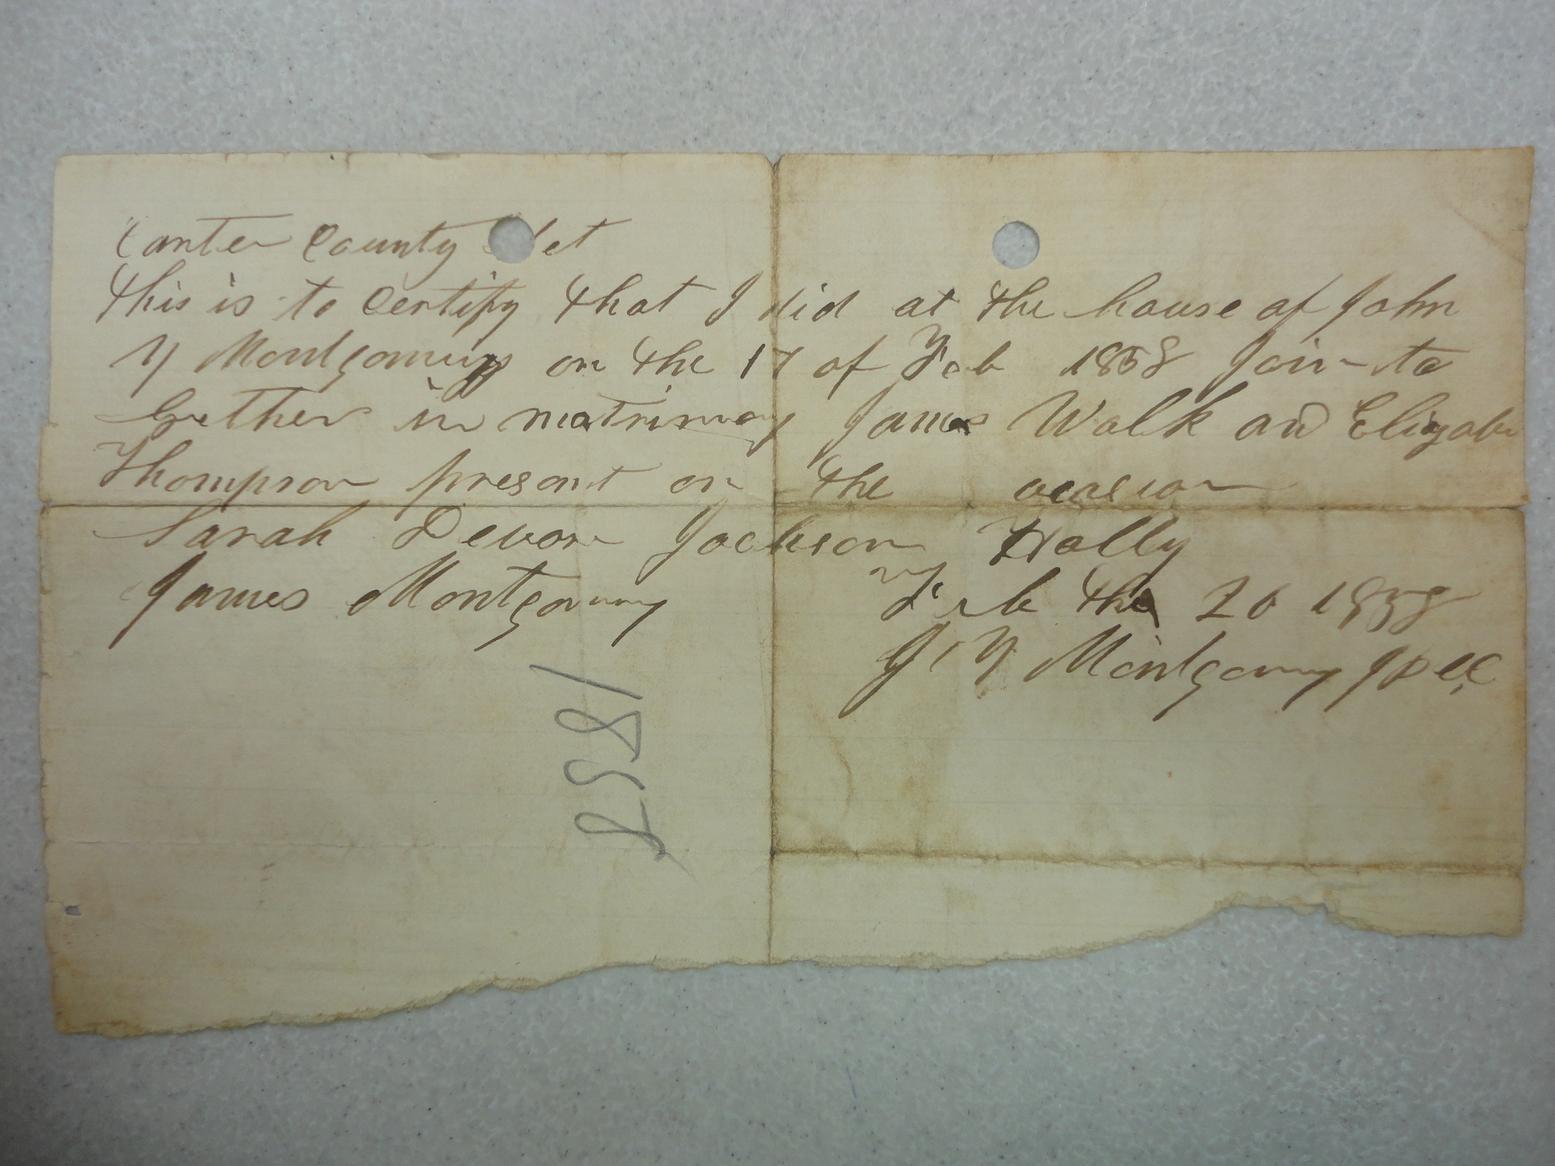 Carter County Sct
this is to Certify that I did at the house of John
Y Montgomerys on the 17 of Feb 1858 Join to
Gether in matrimony James Walk and Elizabe
Thompson present on the ocasion
Sarah Devore Jackson Holly
James Montgomery
Feb the 20 1858
J Y Montgomery
1858